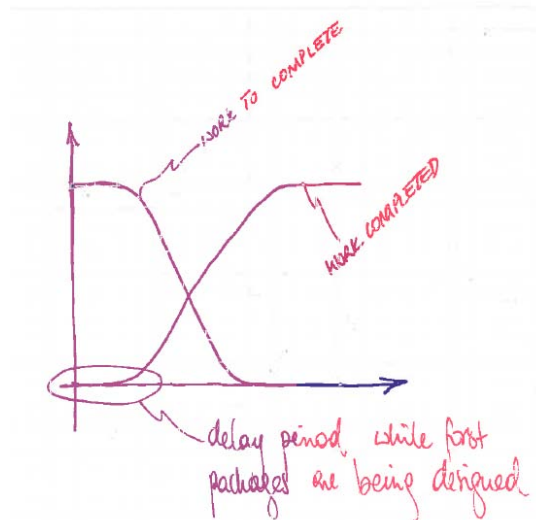 WORK TO COMPLETE
WORK COMPLETED
delay period, while first
packages are being designed